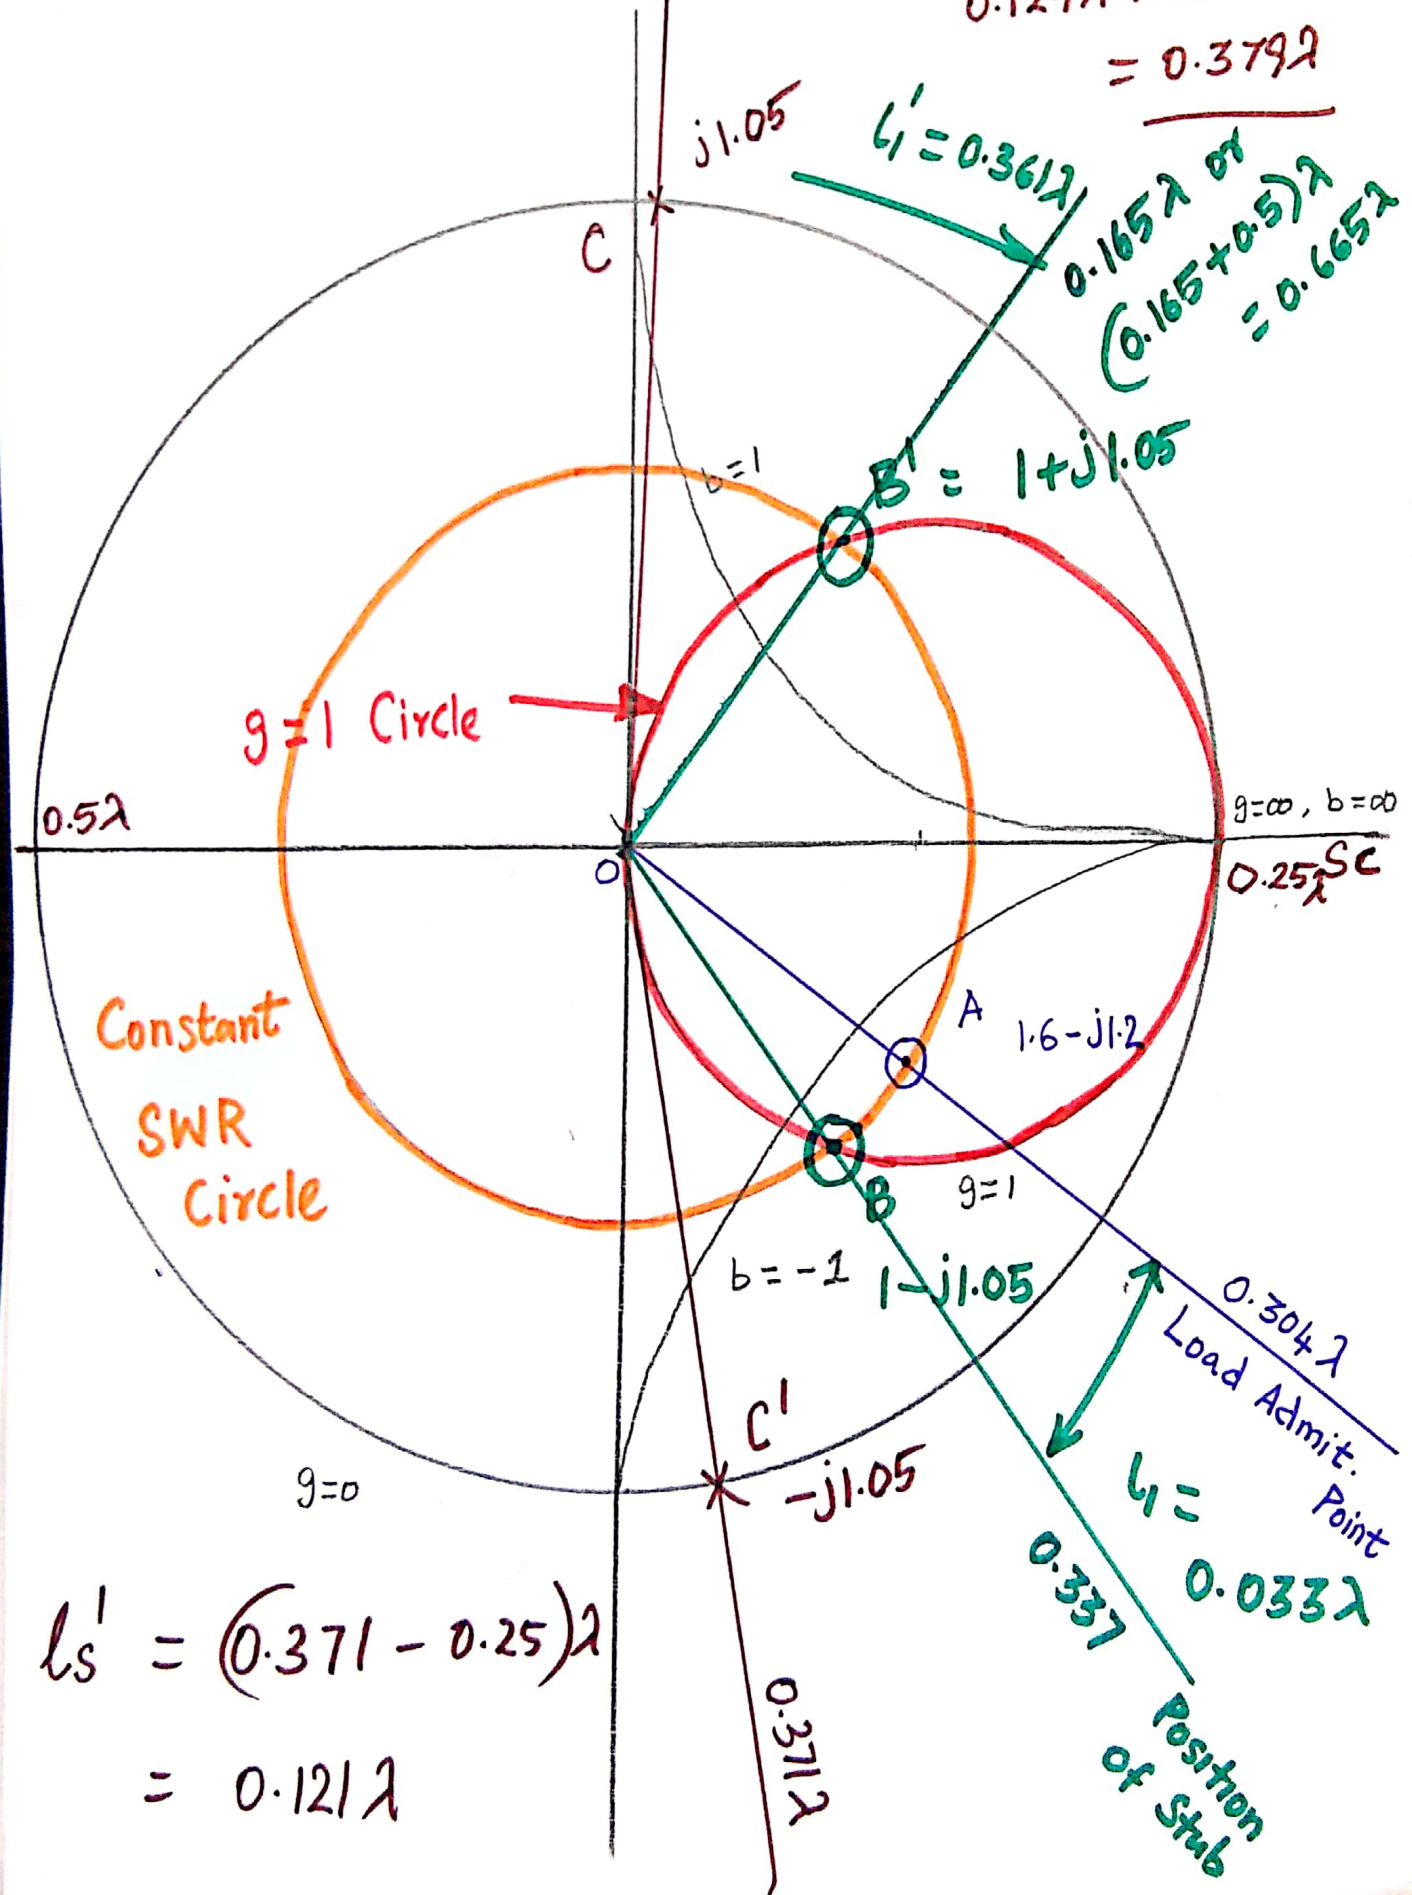 = 0.379λ
j1.05
l₁' = 0.361λ
0.165λ or
(0.165+0.5)λ
= 0.665λ
C
b=1
B' = 1+j1.05
g=1 Circle
0.5λ
g=∞, b=∞
O
0.25λ
SC
A
1.6-j1.2
Constant
SWR
Circle
B
g=1
b=-1
1-j1.05
0.304λ
Load Admit.
Point
C'
-j1.05
g=0
l₁ =
0.033λ
0.337
Position
of Stub
ls' = (0.371 - 0.25)λ
= 0.121λ
0.371λ